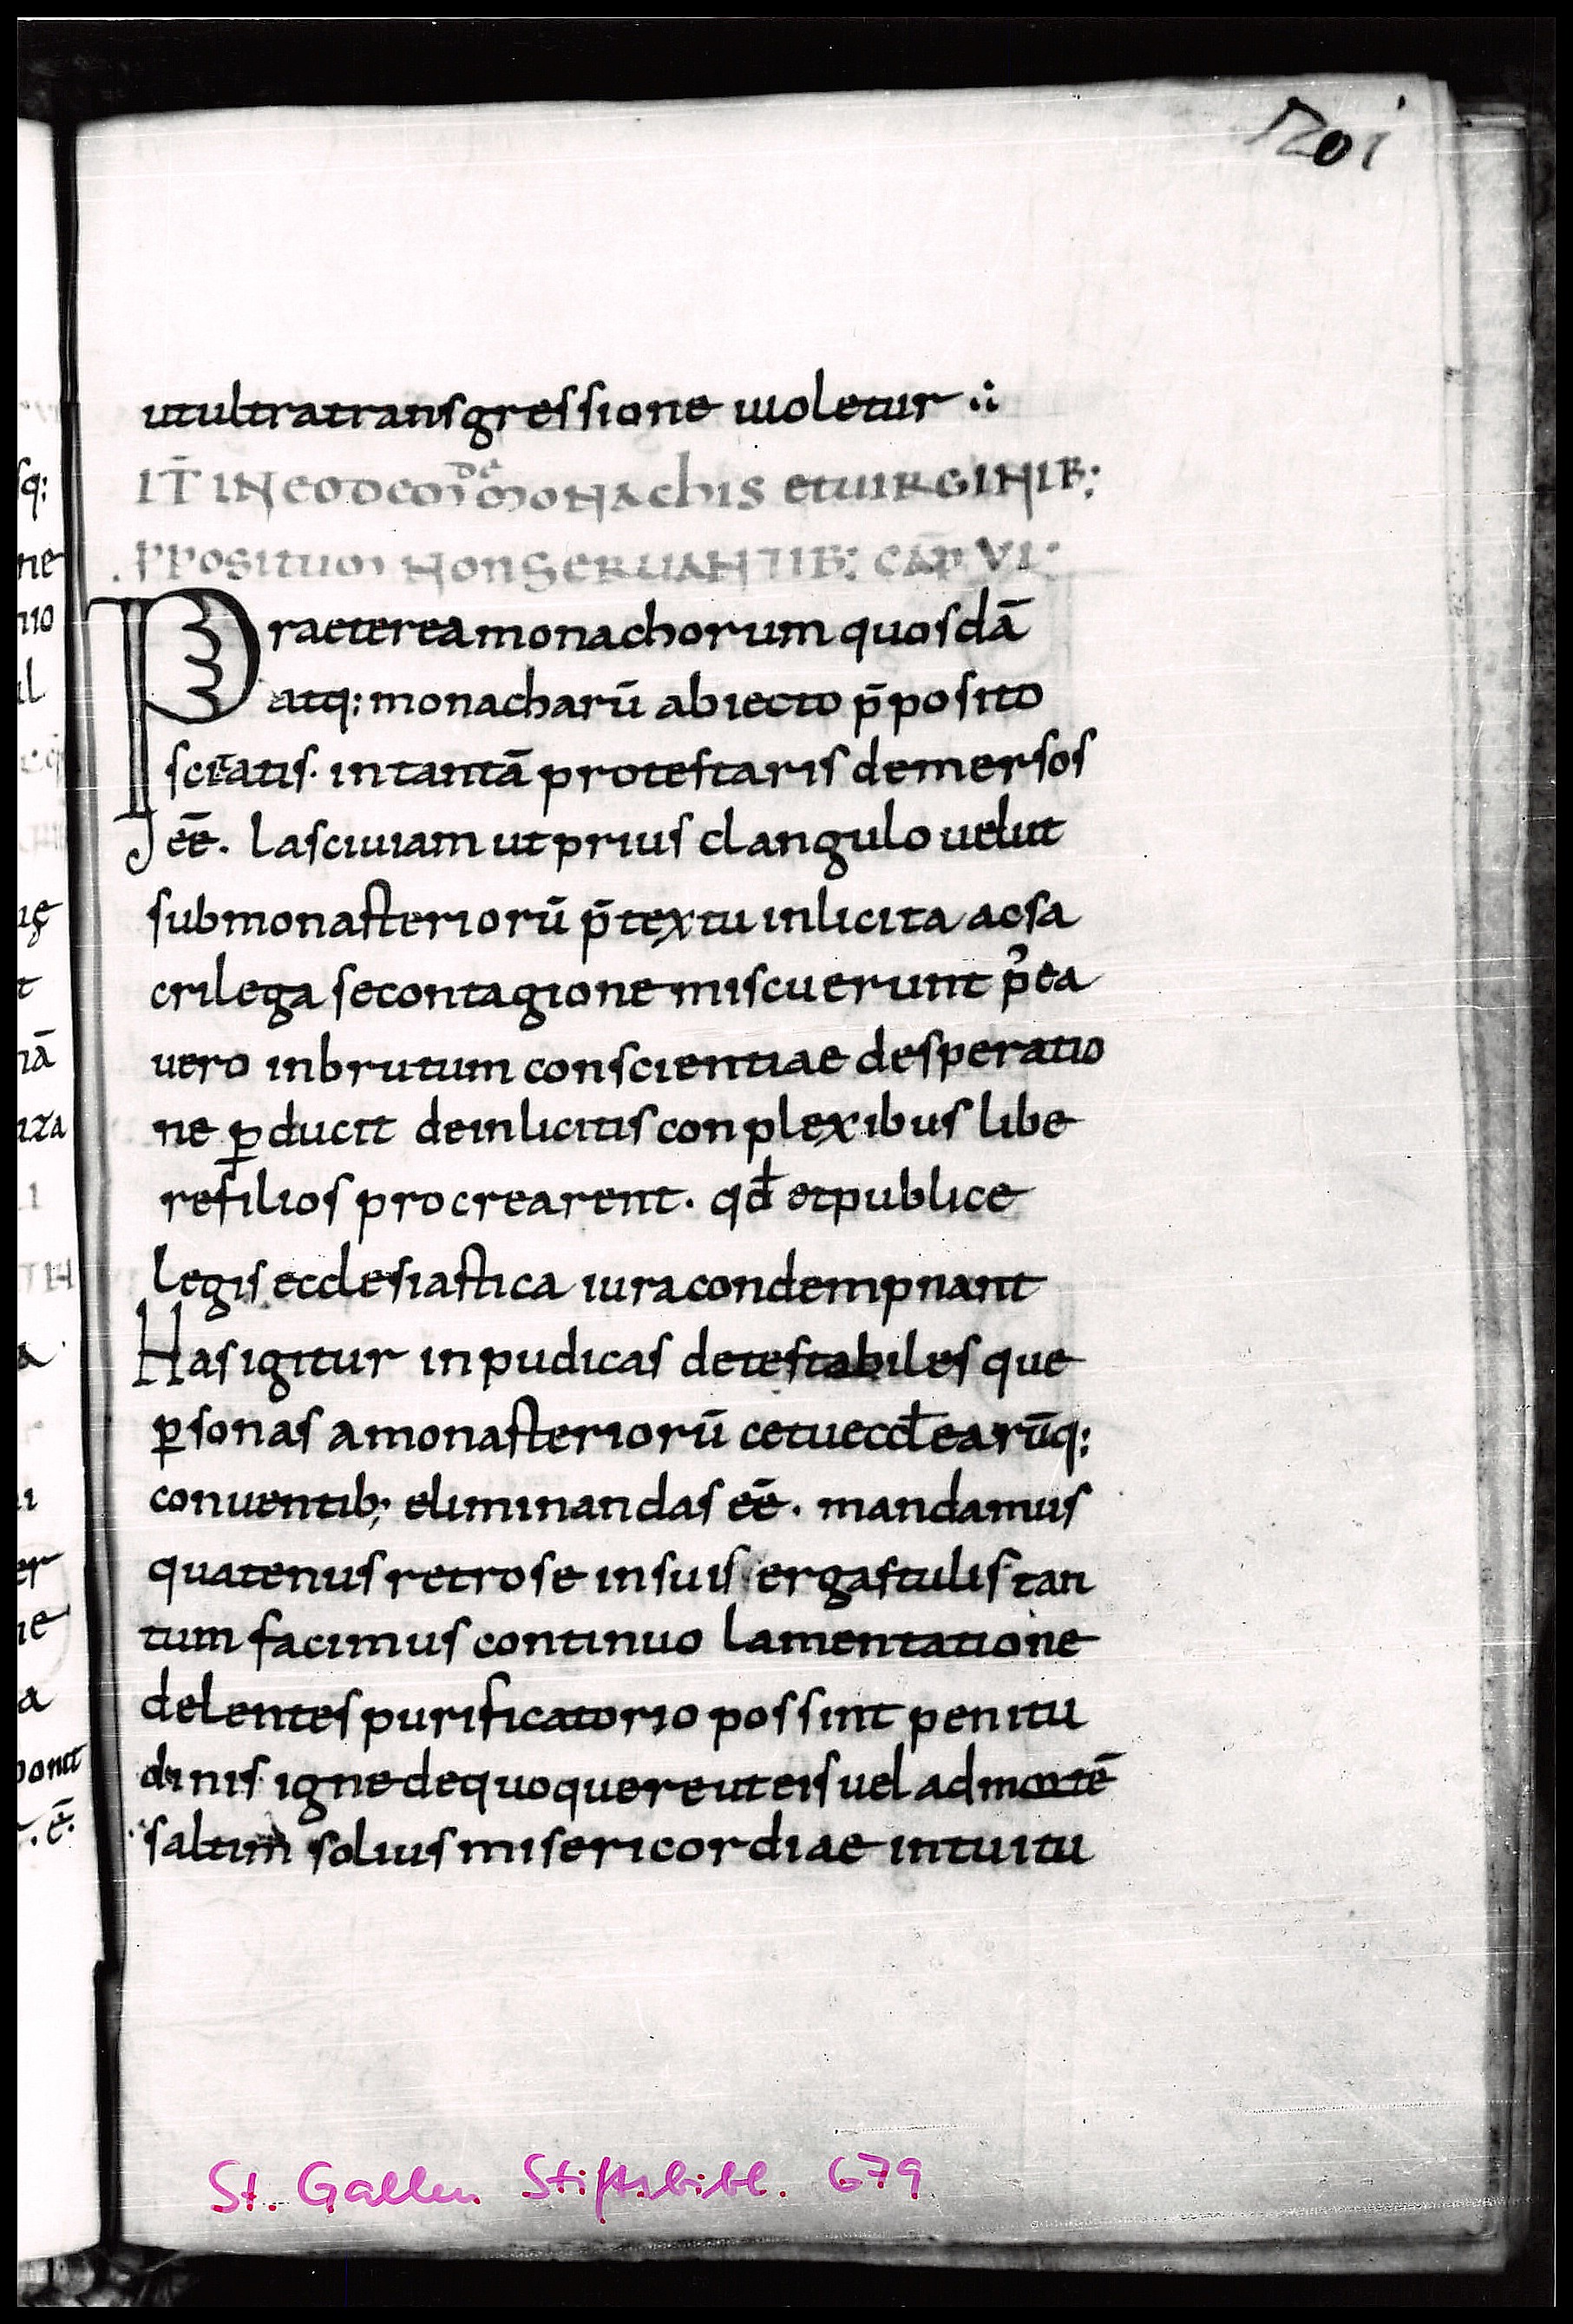 201
utultratransgressione uioletur
IT̄ IN EODEM DE MONACHIS ETUIRGINIB:
PPOSITUM NON SERUANTIB: CAP̄ VI
Praeterea monachorum quosdā
atq: monacharū abiecto p̄posito
scitatis· intantā protestaris demersos
eē̄. lasciuiam utprius clangulo uelut
submonasteriorū p̄textu inlicita acsa
crilega secontagione miscuerunt p̄ea
uero inbrutum conscientiae desperatio
ne ꝑducit deinlicitis conplexibus libe
refilios procrearent. qd̄ etpublice
legis ecclesiastica iura condempnant
Has igitur inpudicas detestabiles que
ꝑsonas amonasteriorū cetuecclearūq:
conuentib; eliminandas eē̄. mandamus
quatenus retrose insuis ergastulis tan
tum facimus continuo lamentatione
delentes purificatorio possint penitu
dinis igne dequoquereuteis uel admortē
saltim solius misericordiae intuitu
sq:
ne
St. Gallen Stiftsbibl. 679